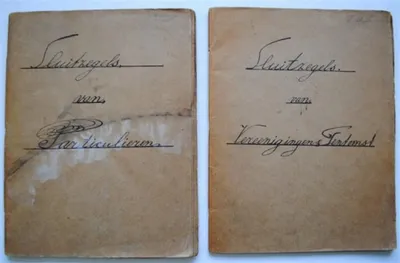 Sluitzegels.
van
Particulieren.
Sluitzegels.
van
Vereenigingen &